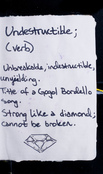 Undestructible;
(verb)
Unbreakable, indestructible,
unyielding.
Title of a Gogol Bordello
song.
Strong like a diamond;
cannot be broken.